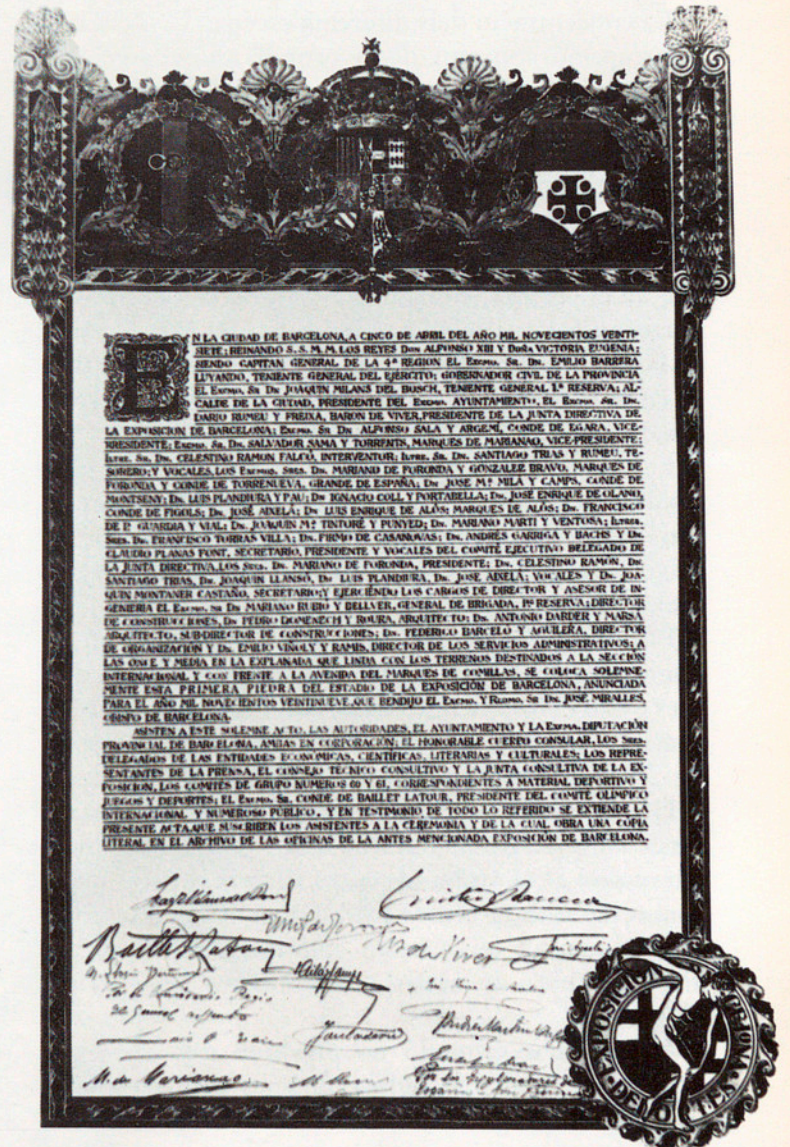 EN LA CIUDAD DE BARCELONA, A CINCO DE ABRIL DEL AÑO MIL NOVECIENTOS VENTI-
SIETE; REINANDO S. S. M. M. LOS REYES DON ALFONSO XIII Y DOÑA VICTORIA EUGENIA;
SIENDO CAPITAN GENERAL DE LA 4ª REGION EL EXCMO. SR. DN. EMILIO BARRERA
LUYANDO, TENIENTE GENERAL DEL EJÉRCITO; GOBERNADOR CIVIL DE LA PROVINCIA
EL EXCMO. SR DN JOAQUIN MILANS DEL BOSCH, TENIENTE GENERAL 1ª RESERVA; AL-
CALDE DE LA CIUDAD, PRESIDENTE DEL EXCMO. AYUNTAMIENTO, EL EXCMO. SR. DN.
DARIO RUMEU Y FREIXA, BARON DE VIVER, PRESIDENTE DE LA JUNTA DIRECTIVA DE
LA EXPOSICION DE BARCELONA; EXCMO. SR DN ALFONSO SALA Y ARGEMÍ, CONDE DE EGARA, VICE-
PRESIDENTE; EXCMO. SR. DN. SALVADOR SAMA Y TORRENTS, MARQUES DE MARIANAO, VICE-PRESIDENTE;
ILTRE. SR. DN. CELESTINO RAMON FALCÓ, INTERVENTOR; ILTRE. SR. DN. SANTIAGO TRIAS Y RUMEU, TE-
SORERO; Y VOCALES, LOS EXCMOS. SRES. DN. MARIANO DE FORONDA Y GONZALEZ BRAVO, MARQUES DE
FORONDA Y CONDE DE TORRENUEVA, GRANDE DE ESPAÑA; DN. JOSE Mª MILÁ Y CAMPS, CONDE DE
MONTSENY; DN. LUIS PLANDIURA Y PAU; DN IGNACIO COLL Y PORTABELLA; DN. JOSÉ ENRIQUE DE OLANO,
CONDE DE FIGOLS; DN. JOSÉ AIXELÁ; DN LUIS ENRIQUE DE ALÓS; MARQUES DE ALÓS; DN. FRANCISCO
DE Pª GUARDIA Y VIAL; DN. JOAQUIN Mª TINTORÉ Y PUNYED; DN. MARIANO MARTI Y VENTOSA; ILTRES.
SRES. DN. FRANCISCO TORRAS VILLA; DN. FIRMO DE CASANOVAS; DN. ANDRÉS GARRIGA Y BACHS Y DN.
CLAUDIO PLANAS FONT, SECRETARIO, PRESIDENTE Y VOCALES DEL COMITÉ EJECUTIVO DELEGADO DE
LA JUNTA DIRECTIVA, LOS SRES. DN. MARIANO DE FORONDA, PRESIDENTE; DN. CELESTINO RAMÓN, DN.
SANTIAGO TRIAS, DN. JOAQUIN LLANSÓ, DN LUIS PLANDIURA, DN. JOSE AIXELÁ; VOCALES Y DN. JOA-
QUIN MONTANER CASTAÑO, SECRETARIO; Y EJERCIENDO LOS CARGOS DE DIRECTOR Y ASESOR DE IN-
GENIERIA EL EXCMO. SR DN MARIANO RUBIO Y BELLVER, GENERAL DE BRIGADA, 1ª RESERVA; DIRECTOR
DE CONSTRUCCIONES, DN PEDRO DOMENECH Y ROURA, ARQUITECTO; DN. ANTONIO DARDER Y MARSÁ
ARQUITECTO, SUB-DIRECTOR DE CONSTRUCCIONES; DN. FEDERICO BARCELO Y AGUILERA, DIRECTOR
DE ORGANIZACIÓN Y DN. EMILIO VIÑOLY Y RAMIS, DIRECTOR DE LOS SERVICIOS ADMINISTRATIVOS; A
LAS ONCE Y MEDIA EN LA EXPLANADA QUE LINDA CON LOS TERRENOS DESTINADOS A LA SECCIÓN
INTERNACIONAL Y CON FRENTE A LA AVENIDA DEL MARQUES DE COMILLAS, SE COLOCA SOLEMNE-
MENTE ESTA PRIMERA PIEDRA DEL ESTADIO DE LA EXPOSICIÓN DE BARCELONA, ANUNCIADA
PARA EL AÑO MIL NOVECIENTOS VEINTINUEVE, QUE BENDIJO EL EXCMO. Y RDMO. SR DN. JOSÉ MIRALLES,
OBISPO DE BARCELONA.
ASISTEN A ESTE SOLEMNE ACTO, LAS AUTORIDADES, EL AYUNTAMIENTO Y LA EXCMA. DIPUTACIÓN
PROVINCIAL DE BARCELONA, AMBAS EN CORPORACIÓN; EL HONORABLE CUERPO CONSULAR, LOS SRES.
DELEGADOS DE LAS ENTIDADES ECONOMICAS, CIENTÍFICAS, LITERARIAS Y CULTURALES; LOS REPRE-
SENTANTES DE LA PRENSA, EL CONSEJO TÉCNICO CONSULTIVO Y LA JUNTA CONSULTIVA DE LA EX-
POSICIÓN, LOS COMITÉS DE GRUPO NUMEROS 60 Y 61, CORRESPONDIENTES A MATERIAL DEPORTIVO Y
JUEGOS Y DEPORTES; EL EXCMO. SR. CONDE DE BAILLET LATOUR, PRESIDENTE DEL COMITÉ OLIMPICO
INTERNACIONAL Y NUMEROSO PÚBLICO, Y EN TESTIMONIO DE TODO LO REFERIDO SE EXTIENDE LA
PRESENTE ACTA, QUE SUSCRIBEN LOS ASISTENTES A LA CEREMONIA Y DE LA CUAL OBRA UNA COPIA
LITERAL EN EL ARCHIVO DE LAS OFICINAS DE LA ANTES MENCIONADA EXPOSICIÓN DE BARCELONA.
Baillet Latour
M. de Marianao
DEPORTES